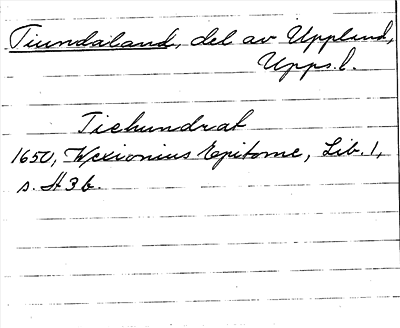 Tiundaland, del av Uppland,
Upps.l.
Tiehundrat
1650, Wexionius Epitome, Lib. 1,
s. H 3 b.